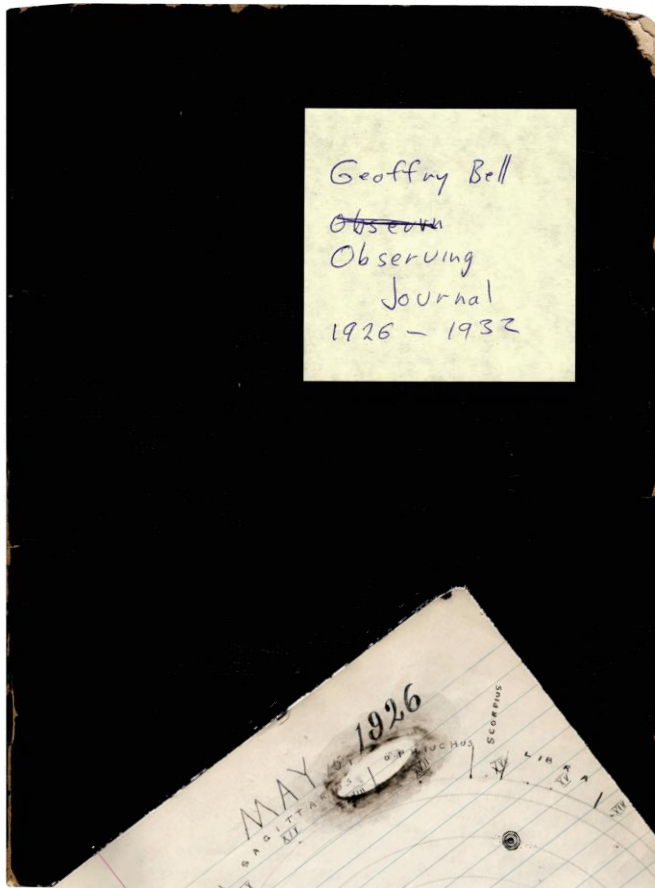 Geoffry Bell
Observn
Observing
Journal
1926 – 1932
MAY 1926
SAGITTARIUS
OPHIUCHUS
SCORPIUS
LIBRA
XV
XIV